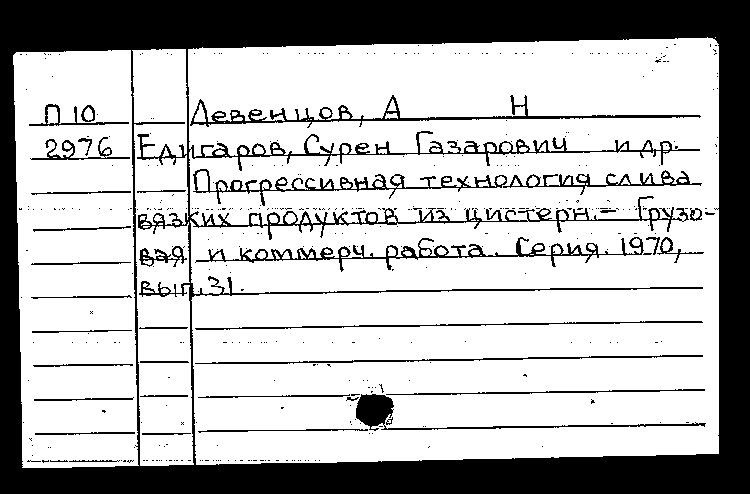 П 10 Левенцов, А Н
2976 Едигаров, Сурен Газарович и др.
Прогрессивная технология слива
вязких продуктов из цистерн.- Грузо-
вая и коммерч. работа. Серия. 1970,
вып.31.